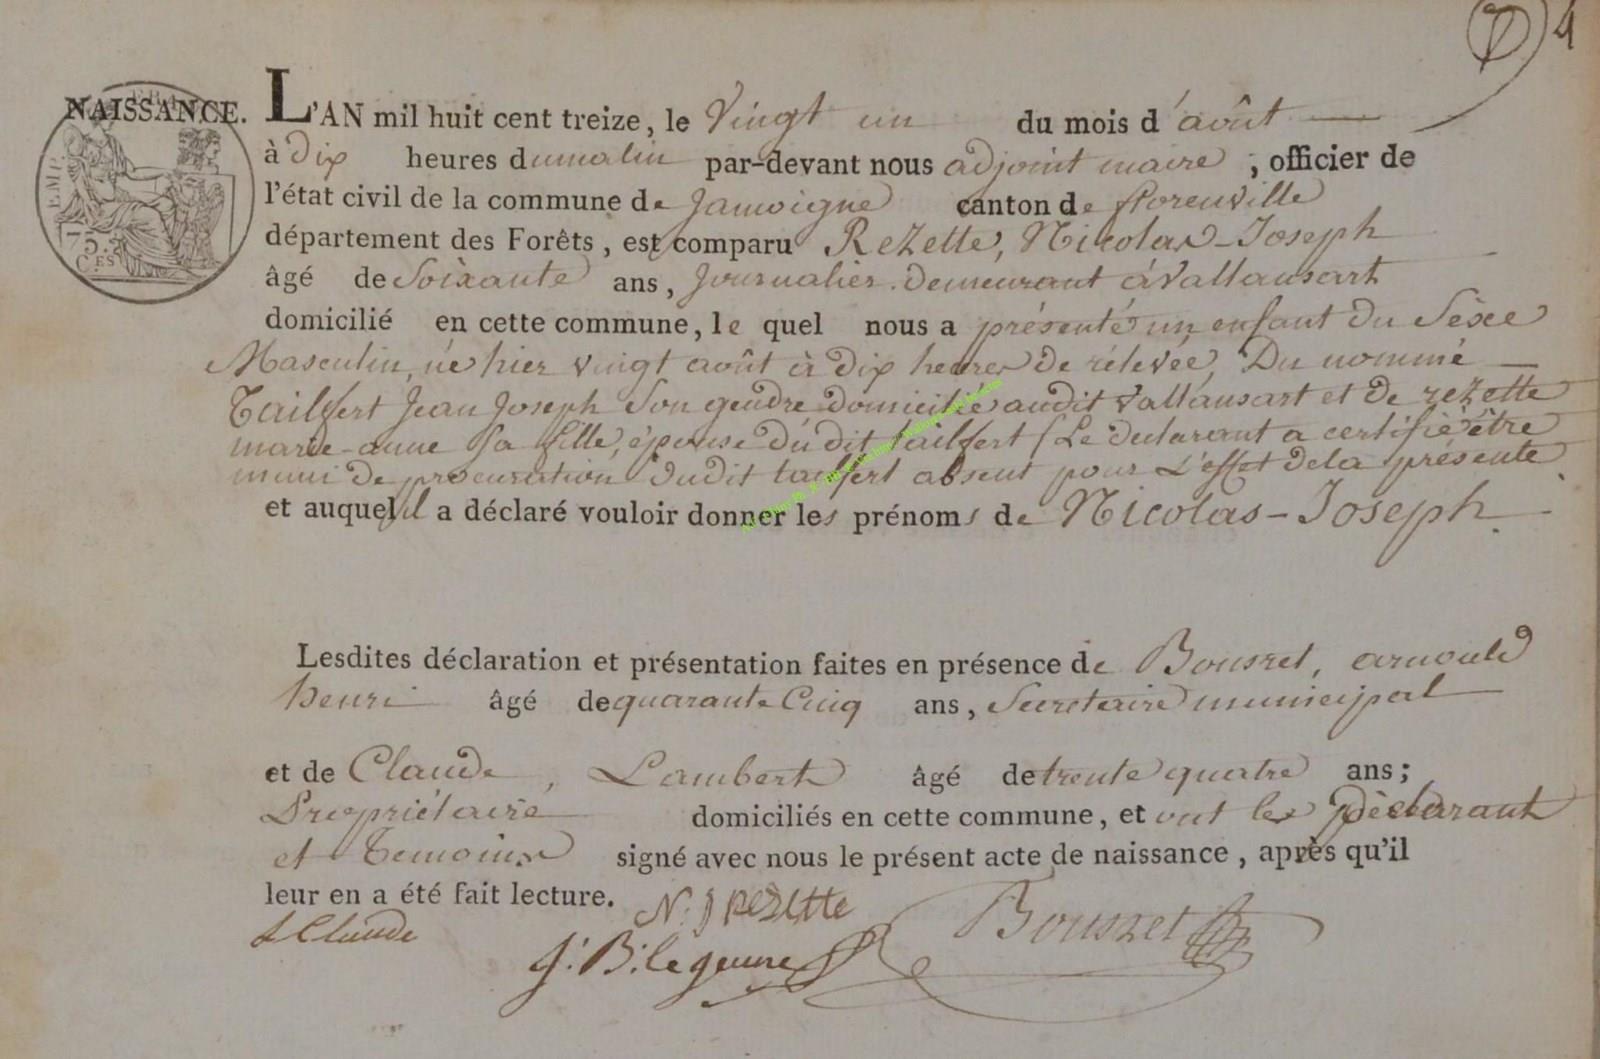 4
NAISSANCE. L'AN mil huit cent treize, le Vingt un du mois d'août
à dix heures dumatin par-devant nous adjoint maire, officier de
l'état civil de la commune de Jamoigne canton de florenville
département des Forêts, est comparu Rezette, Nicolas-Joseph
âgé de Soixante ans, Journalier. demeurant à Vallansart
domicilié en cette commune, le quel nous a présenté un enfant du Sèxe
Masculin, né hier vingt août à dix heures de rélevée, Du nommé
Tailfert Jean Joseph Son gendre domicilié audit Vallansart et de rezette
marie-anne Sa fille, épouse du dit tailfert (Le declarant a certifié être
muni de procuration dudit tailfert absent pour L'effet dela présente
et auquel il a déclaré vouloir donner les prénoms de Nicolas-Joseph.
Lesdites déclaration et présentation faites en présence de Bousret, arnould
henri âgé de quarante Cinq ans, Secretaire municipal
et de Claude, Lambert âgé de trente quatre ans;
Propriétaire domiciliés en cette commune, et ont les Déclarant
et Temoins signé avec nous le présent acte de naissance, après qu'il
leur en a été fait lecture. N. J REZEtte
L Claude J. B. Legeune Bousret
EMP.
75.
C.ES